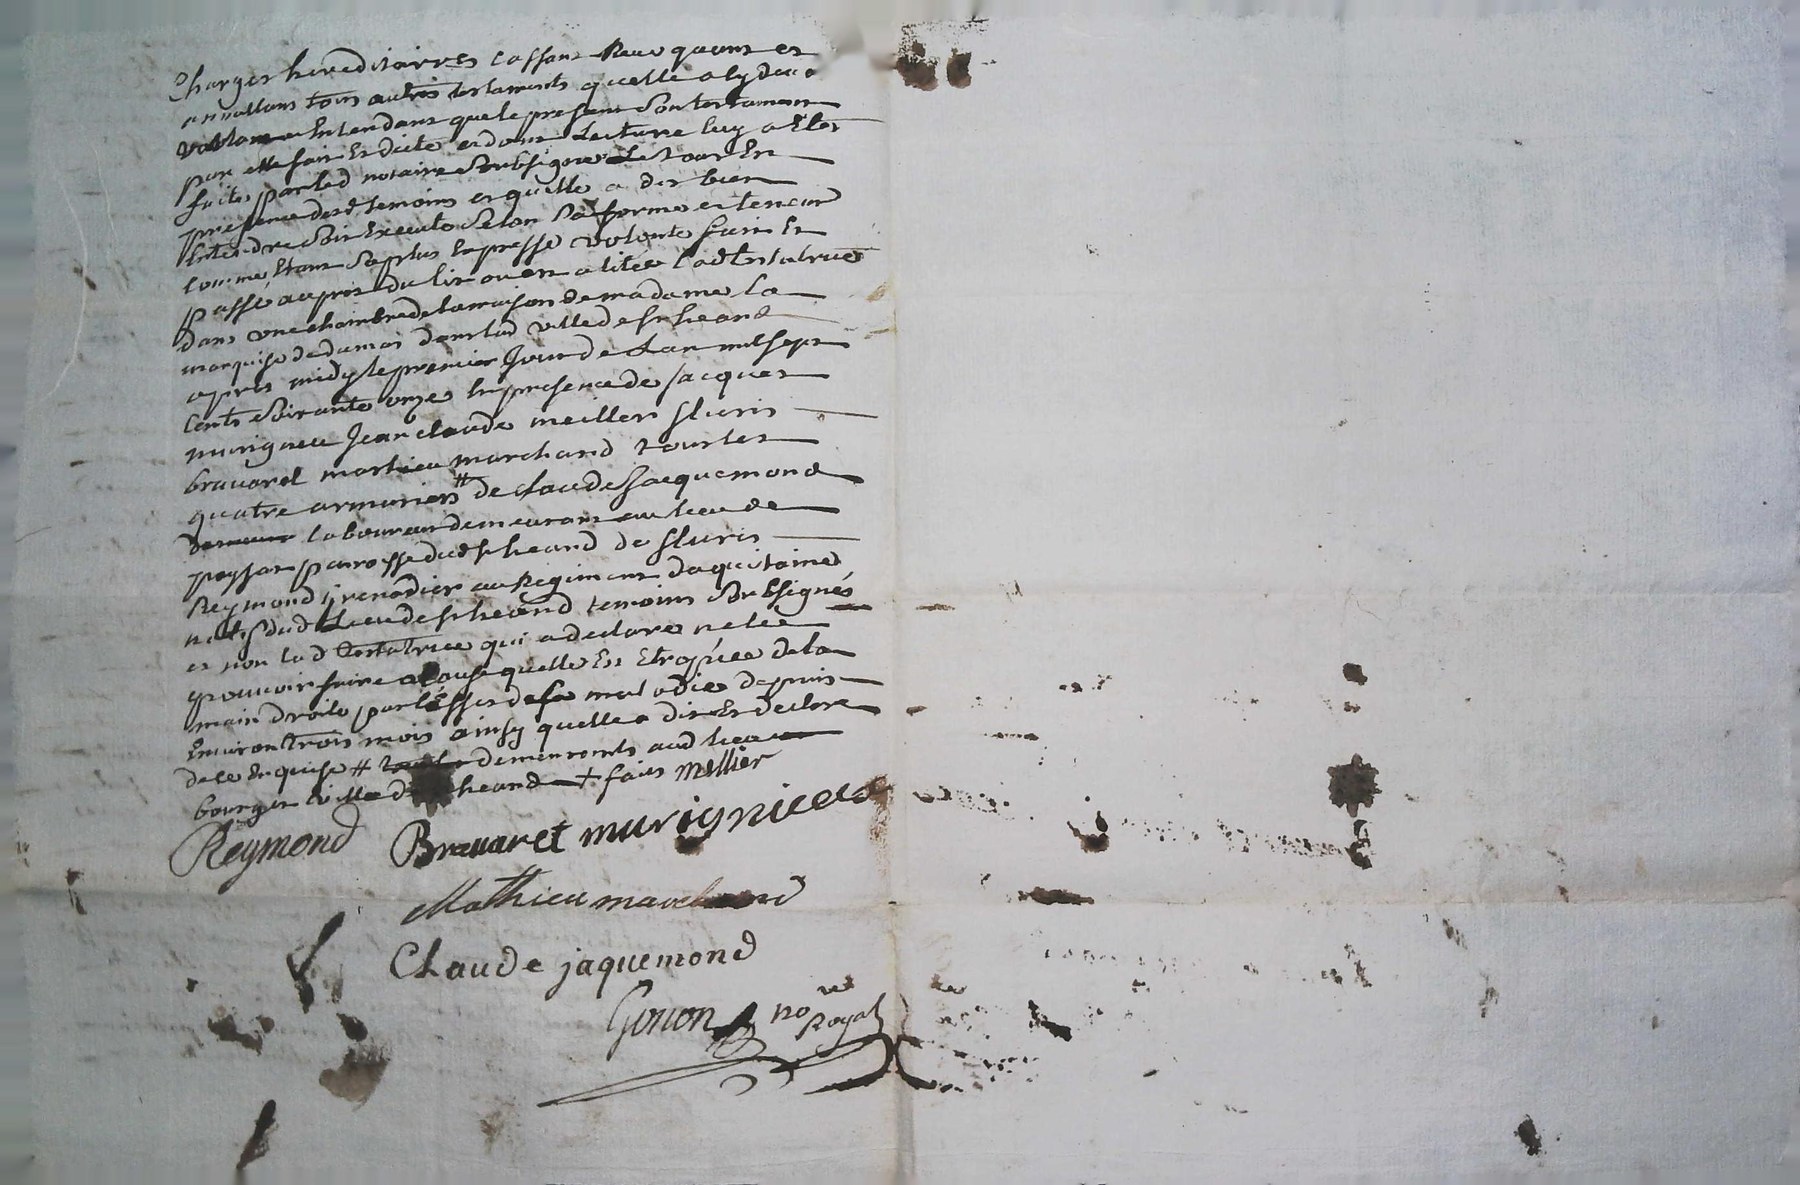 Charges hereditaires cassant Revoquant et
annullant tous autres testaments quelle a cy devant
voulant et Entendant que le present son testament
par elle fait Et dicté et dont Lecture luy a Eté
faite par led notaire Soubsigné Le tout En
presence desd temoins et quelle a dit bien
Entendre soit Executé Selon Sa forme et teneur
comme Etant Sa plus Expresse volonté fait Et
passé aupres du lit ou est alitée lad Testatrice
dans une chambre de la maison de madame La
marquise de damas dans lad ville de st heand
apres midy le premier Jour de Lan mil sept
cents soixante onze En presence de Jacques
murigneu Jean claude meiller sieurs
bravaret mathieu marchand tous les
quatre armuriers # de claude Jacquemond
laboureur demeurant au lieu de
paroisse dud st heand de sieur
Reymond grenadier au Regiment daquitaine
natif dud Lieu de st heand temoins soubsignés
et non lad Testatrice qui a declaré ne le
pouvoir faire a cause quelle Est Etropiée de la
main droite par l'Effet de sa maladie depuis
Environ trois mois ainsy quelle a dit Et declaré
de ce Enquise # demeurants aud lieu
bourg et ville de st heand + fait mellier
Reymond Bravaret murignieu
Mathieu marchand
Claude jaquemond
Gonon nore
Royal